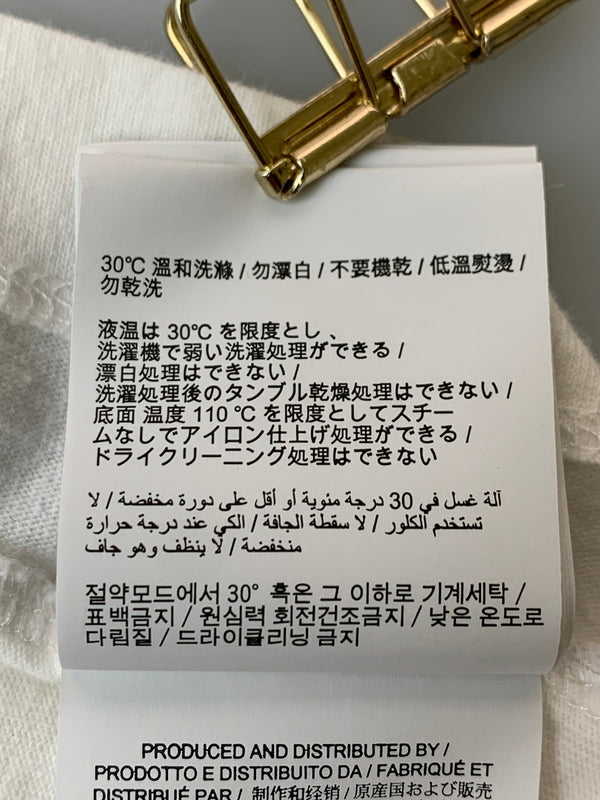 30℃ 溫和洗滌 / 勿漂白 / 不要機乾 / 低溫熨燙 /
勿乾洗
液温は 30℃ を限度とし 、
洗濯機で弱い洗濯処理ができる /
漂白処理はできない /
洗濯処理後のタンブル乾燥処理はできない /
底面 温度 110 ℃ を限度としてスチー
ムなしでアイロン仕上げ処理ができる /
ドライクリーニング処理はできない
آلة غسل في 30 درجة مئوية أو أقل على دورة مخفضة / لا
تستخدم الكلور / لا سقطة الجافة / الكي عند درجة حرارة
منخفضة / لا ينظف وهو جاف
절약모드에서 30° 혹은 그 이하로 기계세탁 /
표백금지 / 원심력 회전건조금지 / 낮은 온도로
다림질 / 드라이클리닝 금지
PRODUCED AND DISTRIBUTED BY /
PRODOTTO E DISTRIBUITO DA / FABRIQUÉ ET
DISTRIBUÉ PAR / 制作和经销 / 原産国および販売